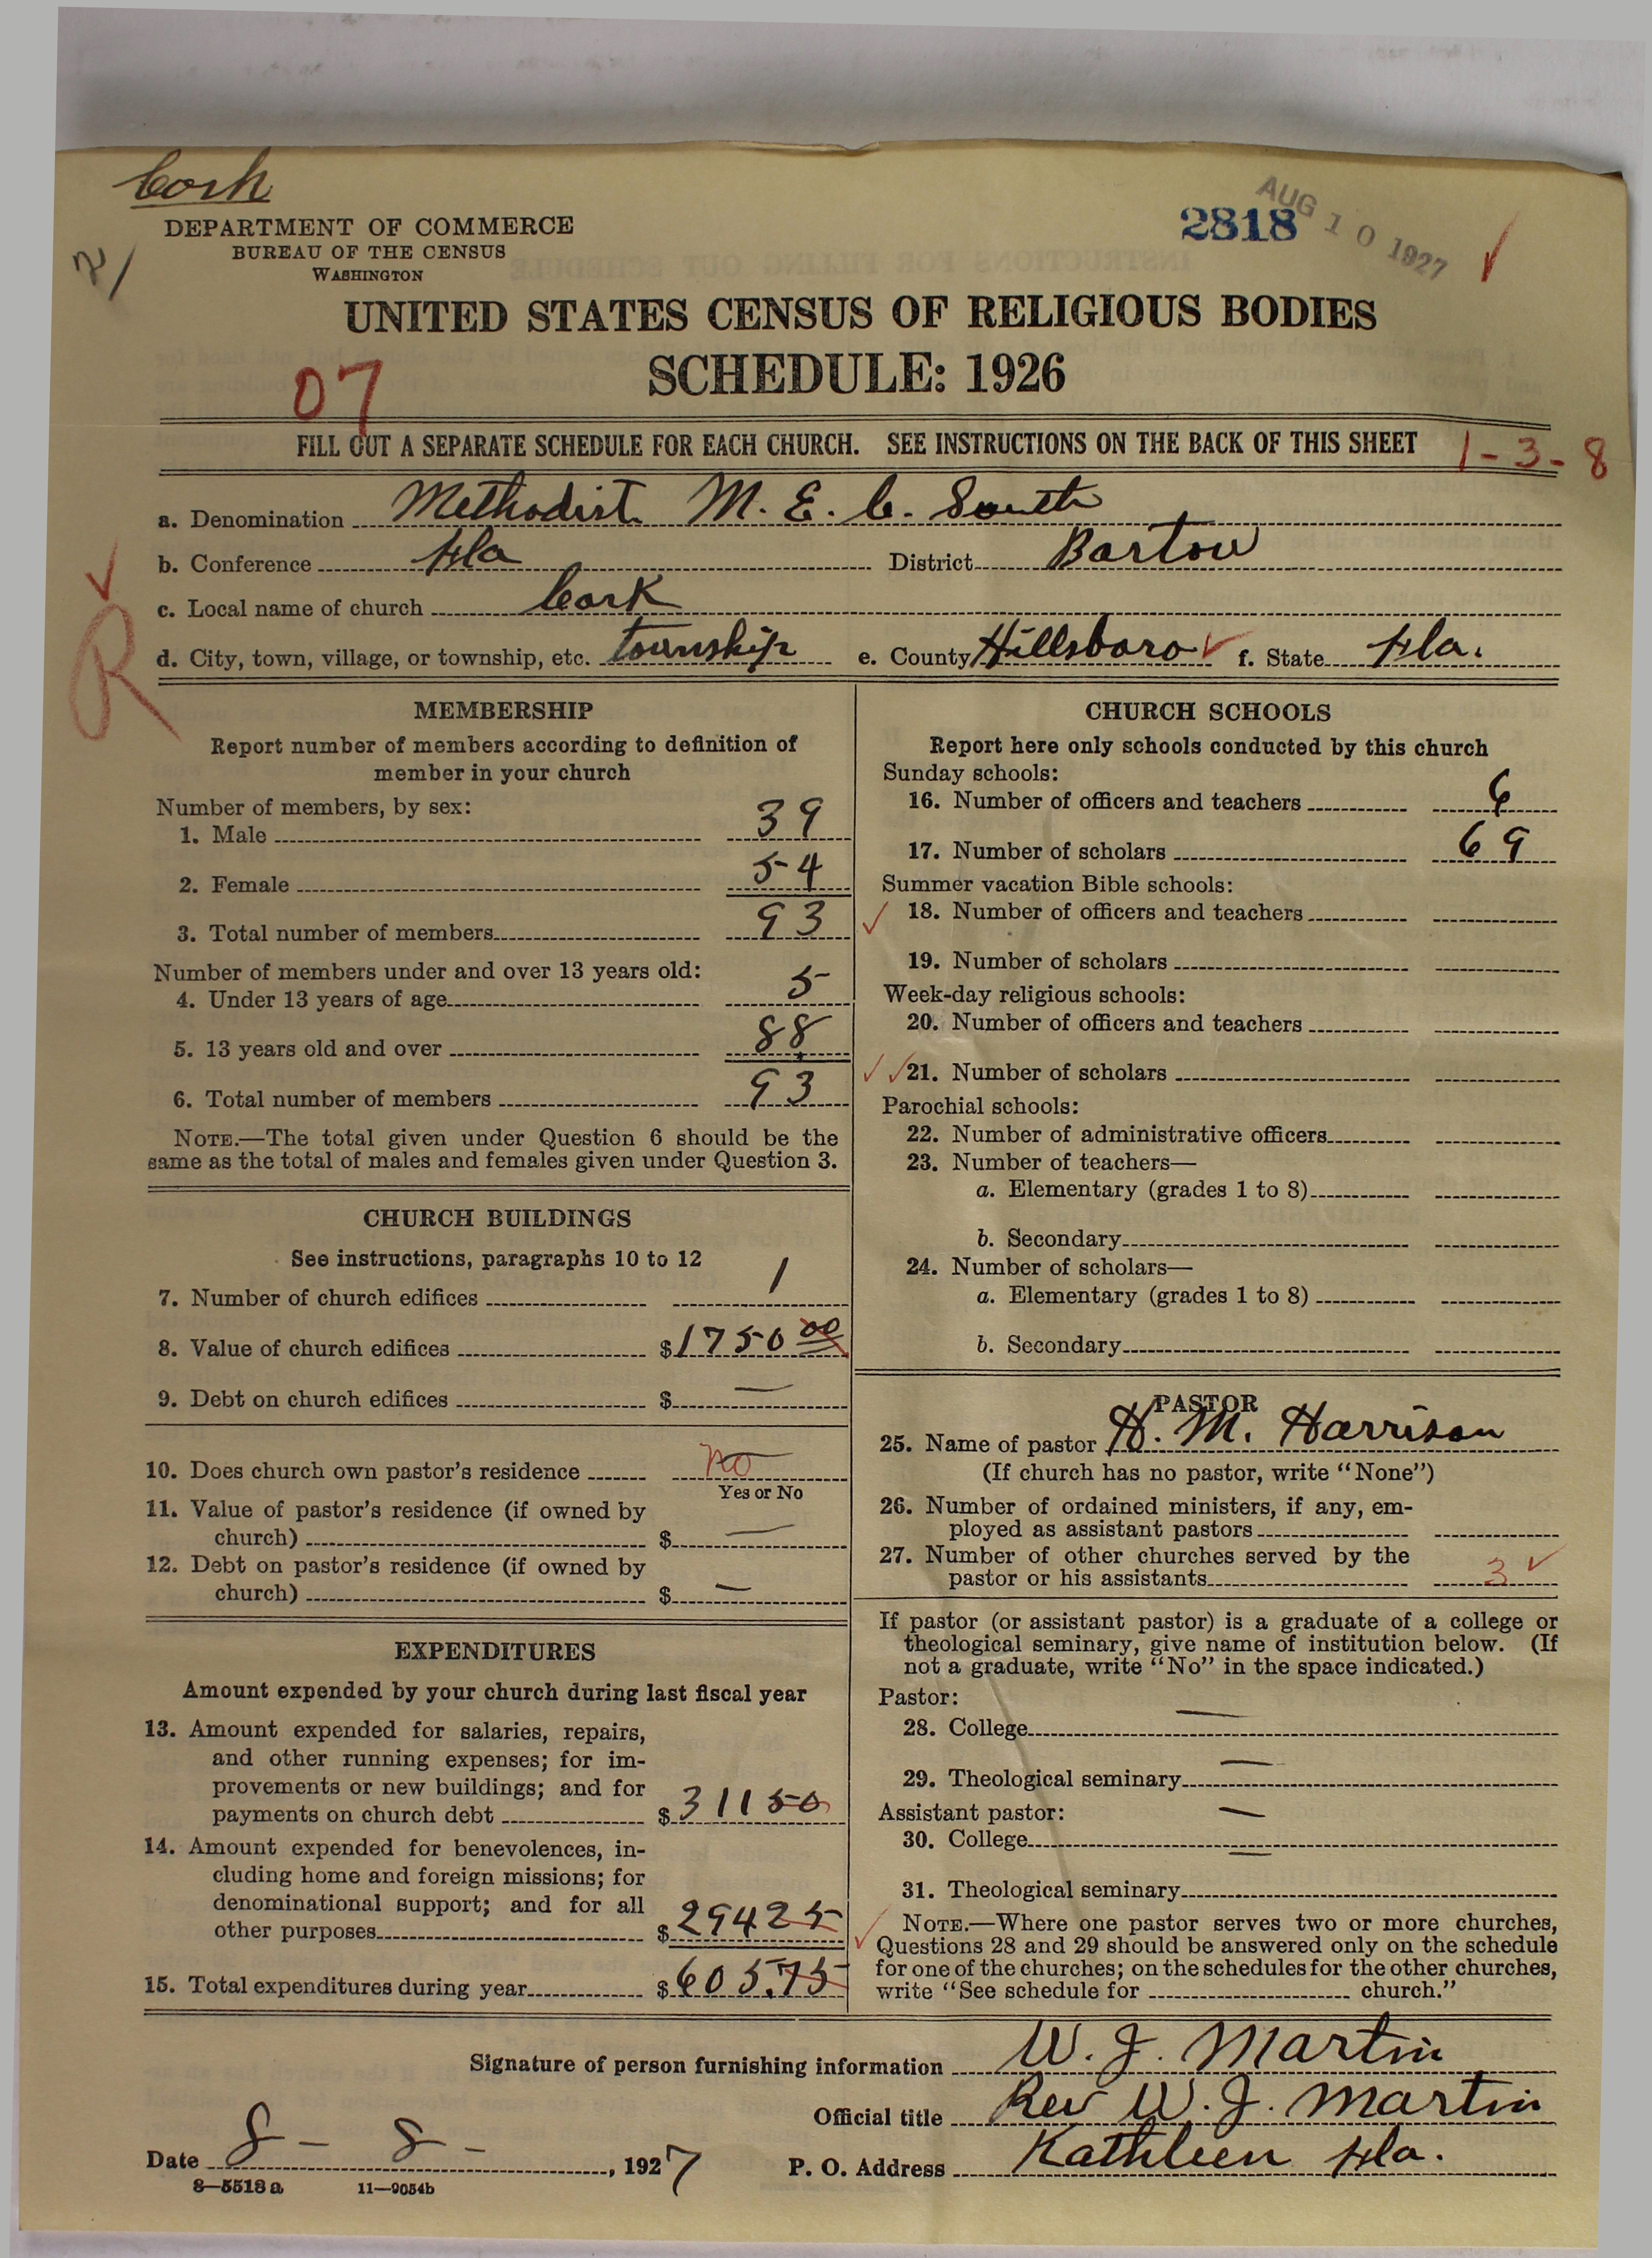 Cork
DEPARTMENT OF COMMERCE
BUREAU OF THE CENSUS
WASHINGTON
2818
AUG 10 1927
UNITED STATES CENSUS OF RELIGIOUS BODIES
SCHEDULE: 1926
07
FILL OUT A SEPARATE SCHEDULE FOR EACH CHURCH. SEE INSTRUCTIONS ON THE BACK OF THIS SHEET
1-3-8
a. Denomination Methodist M. E. C. South
b. Conference Fla District Bartow
c. Local name of church Cork
R
d. City, town, village, or township, etc. township e. County Hillsboro f. State Fla.
MEMBERSHIP
Report number of members according to definition of
member in your church
Number of members, by sex:
1. Male 39
2. Female 54
3. Total number of members 93
Number of members under and over 13 years old:
4. Under 13 years of age 5
5. 13 years old and over 88
6. Total number of members 93
NOTE.—The total given under Question 6 should be the
same as the total of males and females given under Question 3.
CHURCH BUILDINGS
See instructions, paragraphs 10 to 12
7. Number of church edifices 1
8. Value of church edifices $1750 00
9. Debt on church edifices $ —
10. Does church own pastor's residence No
Yes or No
11. Value of pastor's residence (if owned by
church) $ —
12. Debt on pastor's residence (if owned by
church) $ —
EXPENDITURES
Amount expended by your church during last fiscal year
13. Amount expended for salaries, repairs,
and other running expenses; for im-
provements or new buildings; and for
payments on church debt $ 311 50
14. Amount expended for benevolences, in-
cluding home and foreign missions; for
denominational support; and for all
other purposes $ 294 25
15. Total expenditures during year $ 605.75
CHURCH SCHOOLS
Report here only schools conducted by this church
Sunday schools:
16. Number of officers and teachers 6
17. Number of scholars 69
Summer vacation Bible schools:
18. Number of officers and teachers
19. Number of scholars
Week-day religious schools:
20. Number of officers and teachers
21. Number of scholars
Parochial schools:
22. Number of administrative officers
23. Number of teachers—
a. Elementary (grades 1 to 8)
b. Secondary
24. Number of scholars—
a. Elementary (grades 1 to 8)
b. Secondary
PASTOR
25. Name of pastor H. M. Harrison
(If church has no pastor, write "None")
26. Number of ordained ministers, if any, em-
ployed as assistant pastors
27. Number of other churches served by the
pastor or his assistants 3
If pastor (or assistant pastor) is a graduate of a college or
theological seminary, give name of institution below. (If
not a graduate, write "No" in the space indicated.)
Pastor:
28. College —
29. Theological seminary —
Assistant pastor:
30. College —
31. Theological seminary —
NOTE.—Where one pastor serves two or more churches,
Questions 28 and 29 should be answered only on the schedule
for one of the churches; on the schedules for the other churches,
write "See schedule for church."
Signature of person furnishing information W. J. Martin
Official title Rev W. J. Martin
Date 8 - 8 - , 1927 P. O. Address Kathleen Fla.
8—5518a 11—9054b